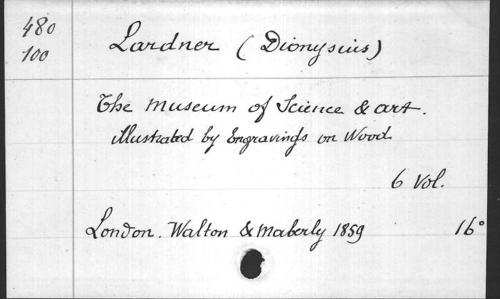 480
100
Lardner (Dionysius)
The Museum of Science & art.
illustrated by Engravings on Wood
6 Vol.
London. Walton & Maberly 1859 16°